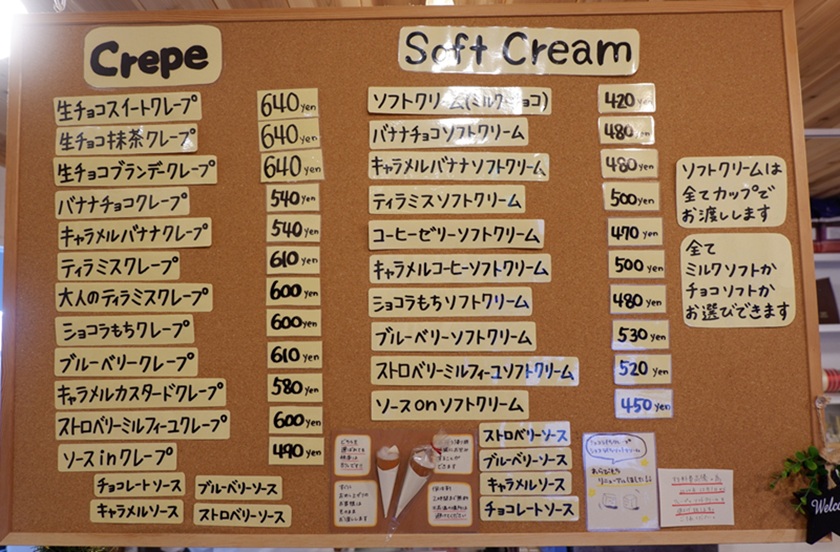 Crepe
生チョコスイートクレープ 640 yen
生チョコ抹茶クレープ 640 yen
生チョコブランデークレープ 640 yen
バナナチョコクレープ 540 yen
キャラメルバナナクレープ 540 yen
ティラミスクレープ 610 yen
大人のティラミスクレープ 600 yen
ショコラもちクレープ 600 yen
ブルーベリークレープ 610 yen
キャラメルカスタードクレープ 580 yen
ストロベリーミルフィーユクレープ 600 yen
ソースinクレープ 490 yen
チョコレートソース
ブルーベリーソース
キャラメルソース
ストロベリーソース
Soft Cream
ソフトクリーム(ミルク チョコ) 420 yen
バナナチョコソフトクリーム 480 yen
キャラメルバナナソフトクリーム 480 yen
ティラミスソフトクリーム 500 yen
コーヒーゼリーソフトクリーム 470 yen
キャラメルコーヒーソフトクリーム 500 yen
ショコラもちソフトクリーム 480 yen
ブルーベリーソフトクリーム 530 yen
ストロベリーミルフィーユソフトクリーム 520 yen
ソースonソフトクリーム 450 yen
ストロベリーソース
ブルーベリーソース
キャラメルソース
チョコレートソース
ソフトクリームは
全てカップで
お渡しします
全て
ミルクソフトか
チョコソフトか
お選びできます